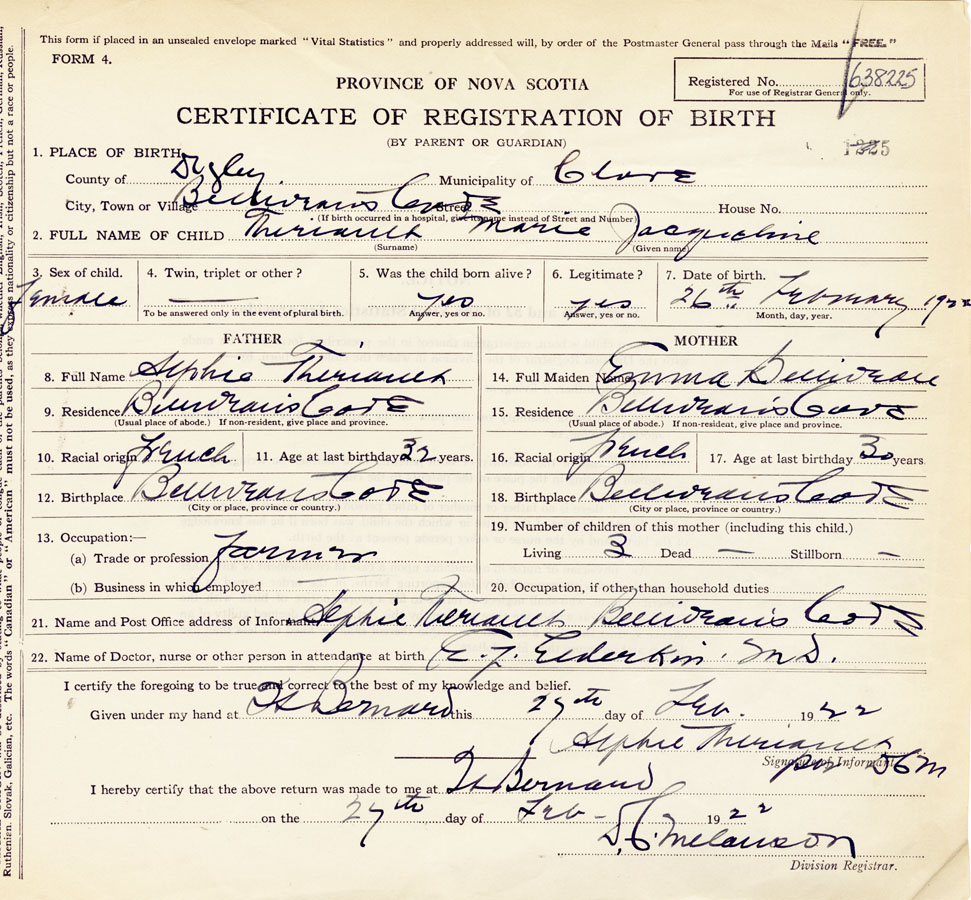 This form if placed in an unsealed envelope marked "Vital Statistics" and properly addressed will, by order of the Postmaster General pass through the Mails "FREE."
FORM 4.
PROVINCE OF NOVA SCOTIA
Registered No. 638225
For use of Registrar General only.
CERTIFICATE OF REGISTRATION OF BIRTH
(BY PARENT OR GUARDIAN)
1. PLACE OF BIRTH
County of Digby Municipality of Clare
City, Town or Village Belliveau's Cove Street House No.
(If birth occurred in a hospital, give its name instead of Street and Number)
2. FULL NAME OF CHILD Theriault Marie Jacqueline
(Surname) (Given name)
3. Sex of child. 4. Twin, triplet or other? 5. Was the child born alive? 6. Legitimate? 7. Date of birth.
Female — yes yes 26th February
To be answered only in the event of plural birth. Answer, yes or no. Answer, yes or no. Month, day, year.
FATHER MOTHER
8. Full Name Theriault 14. Full Maiden Name Emma Belliveau
9. Residence Belliveau's Cove 15. Residence Belliveau's Cove
(Usual place of abode.) If non-resident, give place and province. (Usual place of abode.) If non-resident, give place and province.
10. Racial origin French 11. Age at last birthday 32 years. 16. Racial origin French 17. Age at last birthday 30 years
12. Birthplace Belliveau's Cove 18. Birthplace Belliveau's Cove
(City or place, province or country.) (City or place, province or country.)
13. Occupation:— 19. Number of children of this mother (including this child.)
(a) Trade or profession farmer Living 3 Dead — Stillborn –
(b) Business in which employed — 20. Occupation, if other than household duties
21. Name and Post Office address of Informant Theriault Belliveau's Cove
22. Name of Doctor, nurse or other person in attendance at birth Elderkin. M.D.
I certify the foregoing to be true and correct to the best of my knowledge and belief.
Given under my hand at St Bernard this 27th day of Feb. 1922
Theriault
Signature of Informant
per
I hereby certify that the above return was made to me at St Bernard
on the 27th day of Feb - 1922
Melanson
Division Registrar.